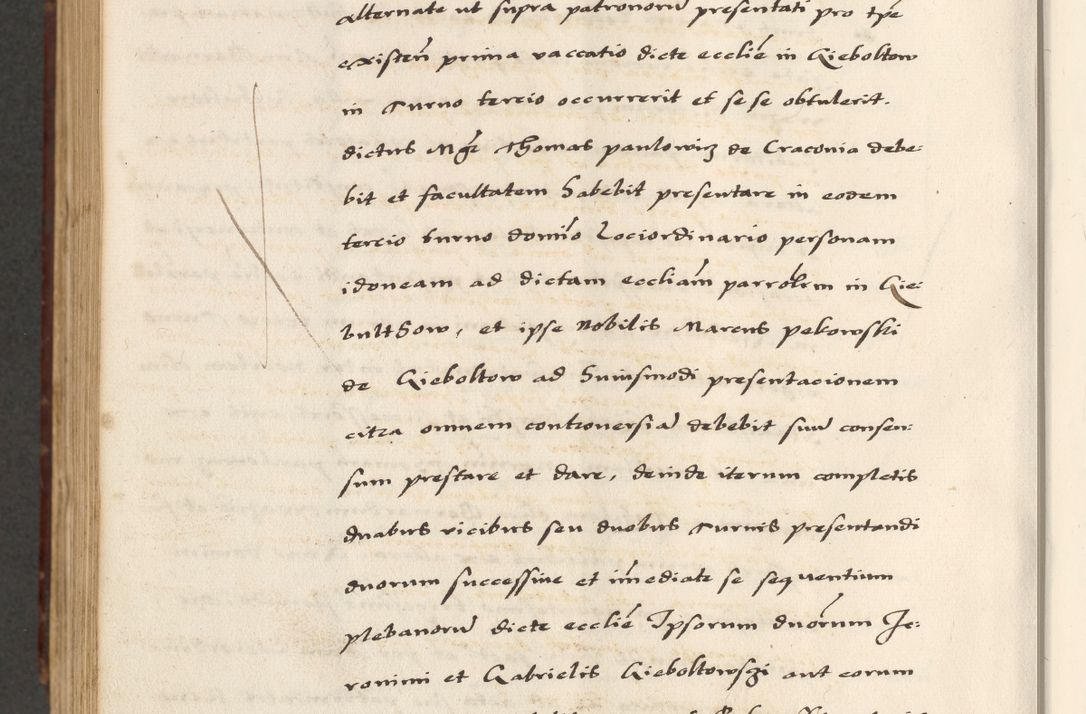 alternate ut supra patronorũ presentati pro tp̃e
existeñ prima vaccatio dicte ecclie͂ in Gieboltow
in turno tercio occurrerit et se se obtulerit.
dictus Mgr̃ Thomas paulowicz de Craconia debe:
bit et facultatem habebit presentare in eodem
tercio turno domĩo Lociordinario personam
idoneam ad dictam eccliam̃ parrochlem in Gie:
bulthow, et ipse Nobilis Marcus pekowski
de Gieboltow ad huiusmodi presentacionem
citra omnem controversiã debebit suũ consen:
sum prestare et dare, deinde iterum completis
duabus vicibus seu duobus turnis presentandi
duorum successiue et im̃ediate se sequentium
plebanorũ dicte ecclie͂ Ipsorum duorum Je:
ronimi et Gabrielis Gieboltowszi aut eorum